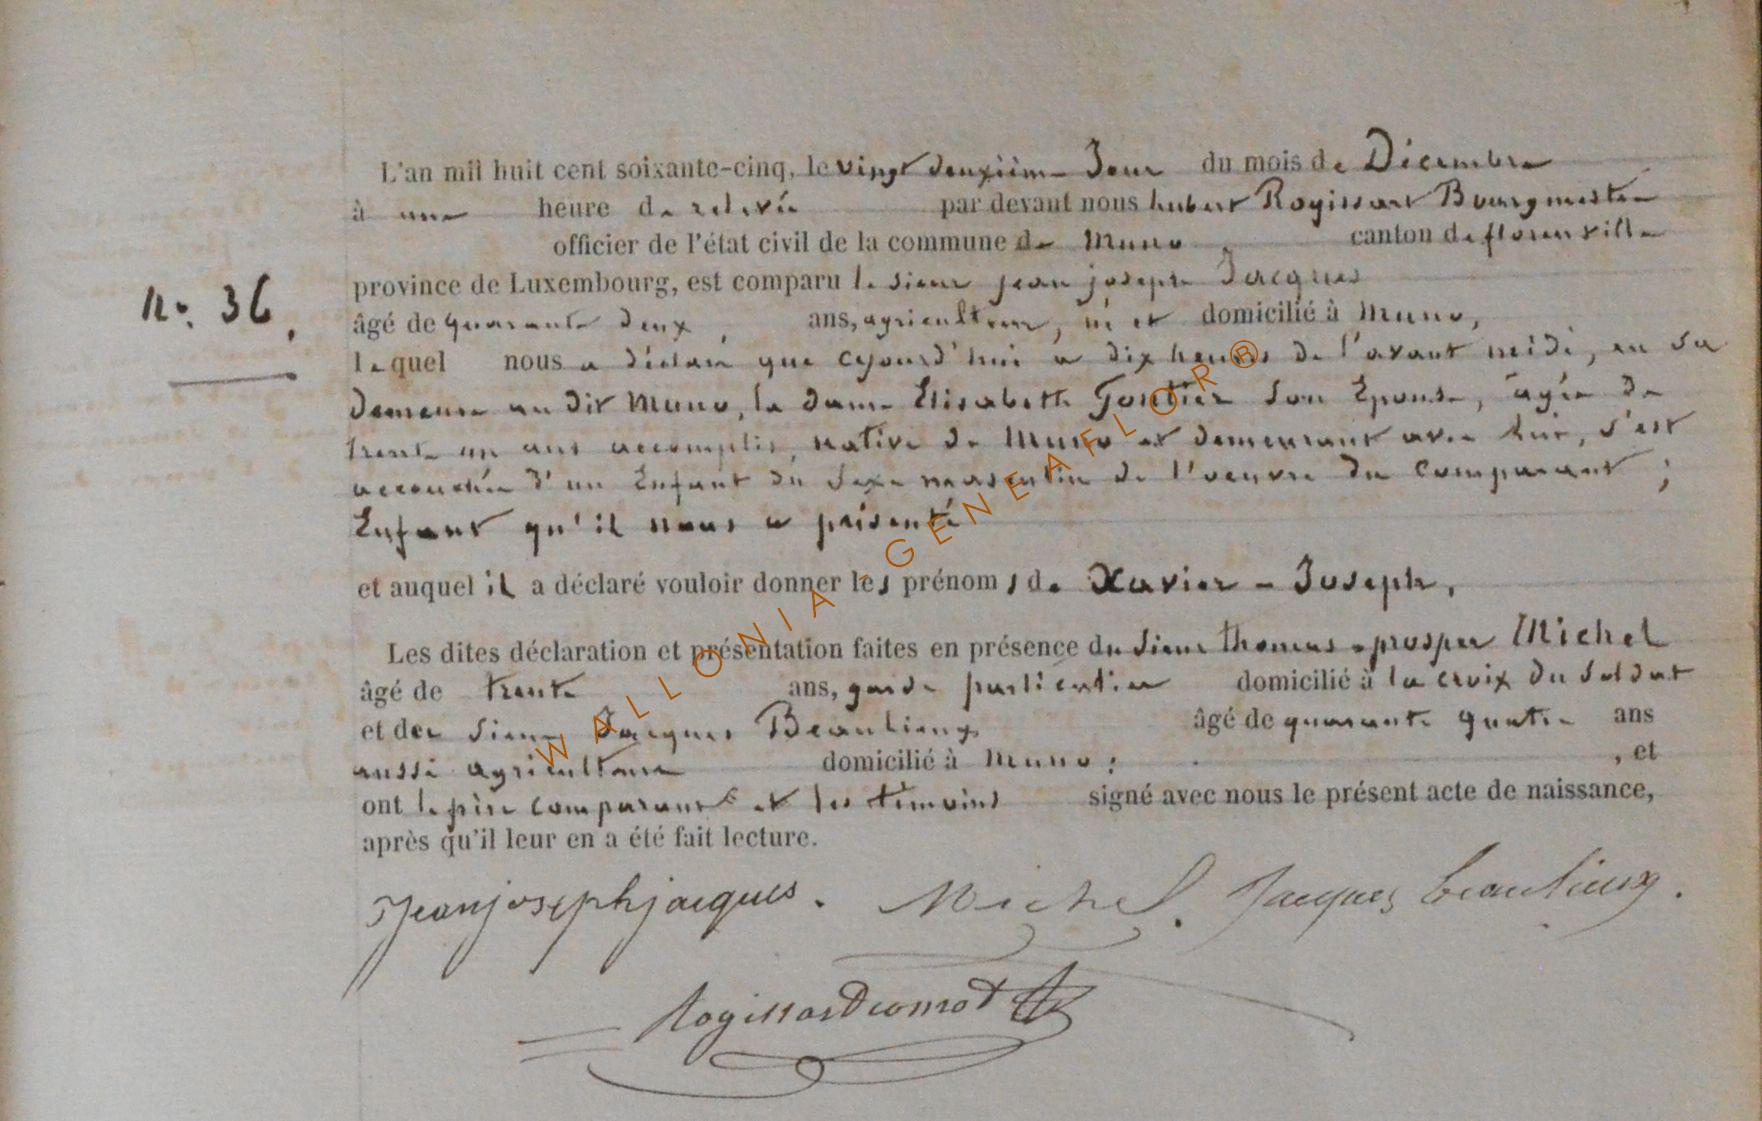 L'an mil huit cent soixante-cinq, le vingt deuxième Jour du mois de Décembre
à une heure de relevée par devant nous hubert Rogissart Bourgmestre
officier de l'état civil de la commune de Muno canton de florenville
province de Luxembourg, est comparu le sieur jean joseph Jacques
n°. 36.
âgé de quarante deux, ans, agriculteur, né et domicilié à Muno,
lequel nous a déclaré que cejourd'hui à dix heures de l'avant midi, en sa
demeure au dit Muno, la dame Elisabeth Gontier son Epouse, âgée de
trente un ans accomplis, native de Muno et demeurant avec lui, s'est
accouchée d'un Enfant du Sexe masculin de l'oeuvre du Comparant ;
Enfant qu'il nous a présenté
et auquel il a déclaré vouloir donner les prénoms de Xavier - Joseph,
Les dites déclaration et présentation faites en présence du sieur thomas - prosper Michel
âgé de trente ans, garde particulier domicilié à la croix du soldat
et de sieur Jacques Beaulieux âgé de quarante quatre ans
aussi agriculteur domicilié à Muno ; , et
ont le père comparant et les témoins signé avec nous le présent acte de naissance,
après qu'il leur en a été fait lecture.
Jeanjosephjacques. Michel. Jacques beaulieux.
WALLONIA - GENEAFLOR®